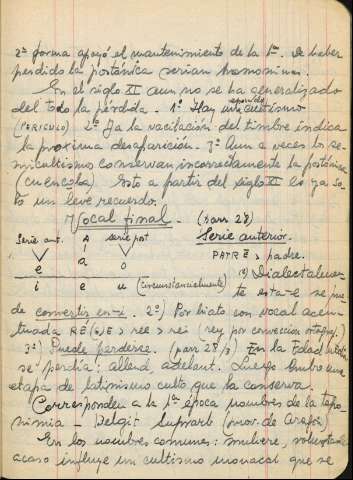 2ª forma apoyó el mantenimiento de la 1ª. De haber
perdido la postónica serían homónimos.
En el siglo XI aun no se ha generalizado
del todo la pérdida. 1º Hay un cultismo
esporádico
(PERICULO) 2º Ya la vacilación del timbre indica
la próxima desaparición. 3º Aun a veces los se-
micultismos conservan incorrectamente la postónica
(cuencola). Esto a partir del siglo XI es ya so-
lo un leve recuerdo.
Vocal final. (párr 28)
Serie ant. A serie post Serie anterior.
e a o PATRE > padre.
i e u (circunstancialmente) 1º) Dialectalmen-
te esta -e se pue-
de convertir en -i. 2º) Por hiato con vocal acen-
tuada REGE > ree > rei (rey por convección ortograf.)
3º) Puede perderse. (párr 28/3) En la Edad Media
se perdía: allend, adelant. Luego hubo una
etapa de latinismo culto que la conserva.
Corresponden a la 1ª época nombres de la topo-
nimia -
En los nombres comunes: mulvere, voluntade
acaso influye un cultismo monacal que se